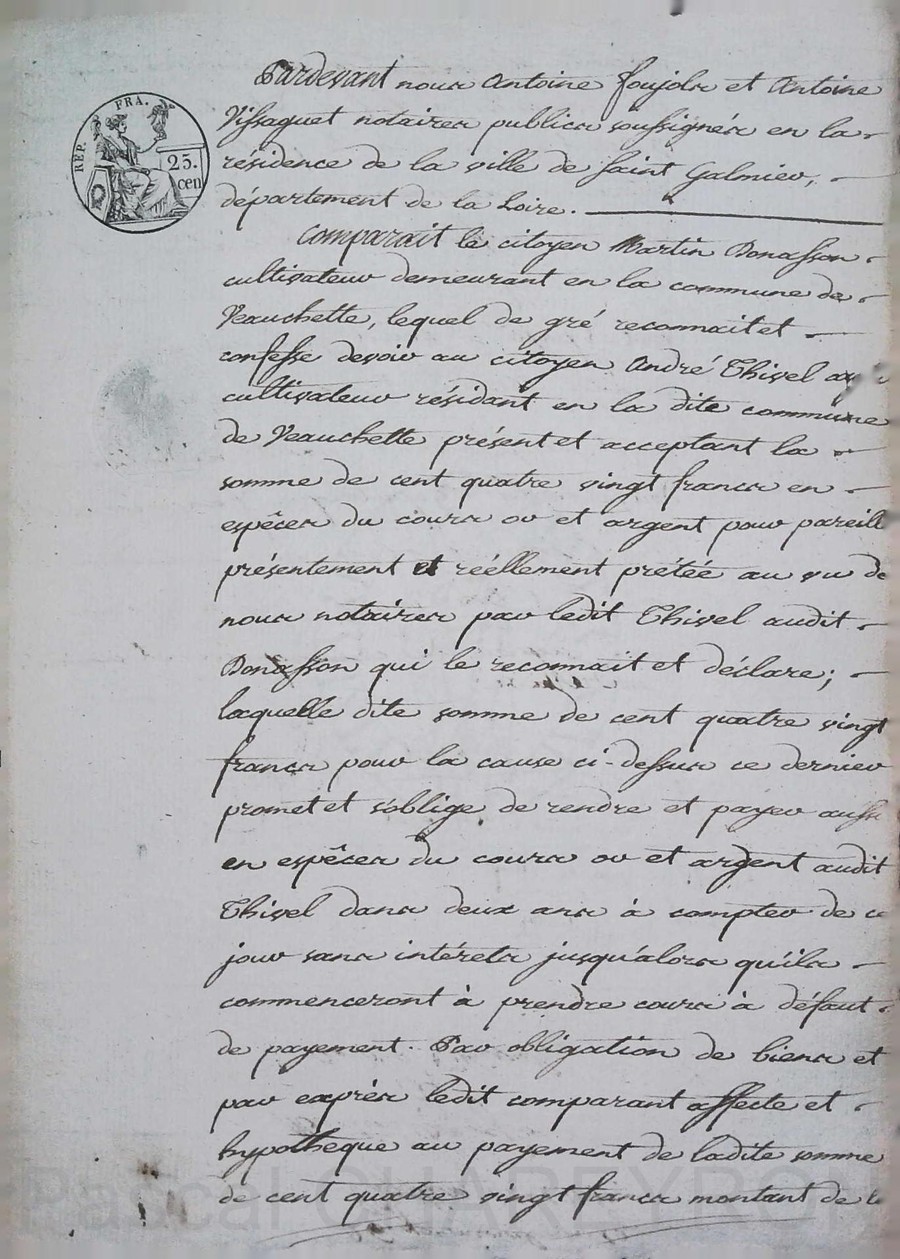 REP. FRA.
25.
cen
Pardevant nous Antoine Foujols et Antoine
Vissaguet notaires publics soussignés en la
résidence de la ville de Saint Galmier,
département de la Loire.
Comparait le citoyen Martin Bonasson
cultivateur demeurant en la commune de
Veauchette, lequel de gré reconnait et
confesse devoir au citoyen André Thivel
cultivateur résidant en la dite commune
de Veauchette présent et acceptant la
somme de cent quatre vingt francs en
espêces du cours or et argent pour pareille
présentement et réellement prétée au vu de
nous notaires par ledit Thivel audit
Bonasson qui le reconnait et déclare;
laquelle dite somme de cent quatre vingt
francs pour la cause ci-dessus ce dernier
promet et s'oblige de rendre et payer aussi
en espêces du cours or et argent audit
Thivel dans deux ans à compter de ce
jour sans intérets jusqu'alors qu'ils
commenceront à prendre cours à défaut
de payement. Par obligation de biens et
par exprès ledit comparant affecte et
hypotheque au payement de ladite somme
de cent quatre vingt francs montant de
Pascal CHAREYRON